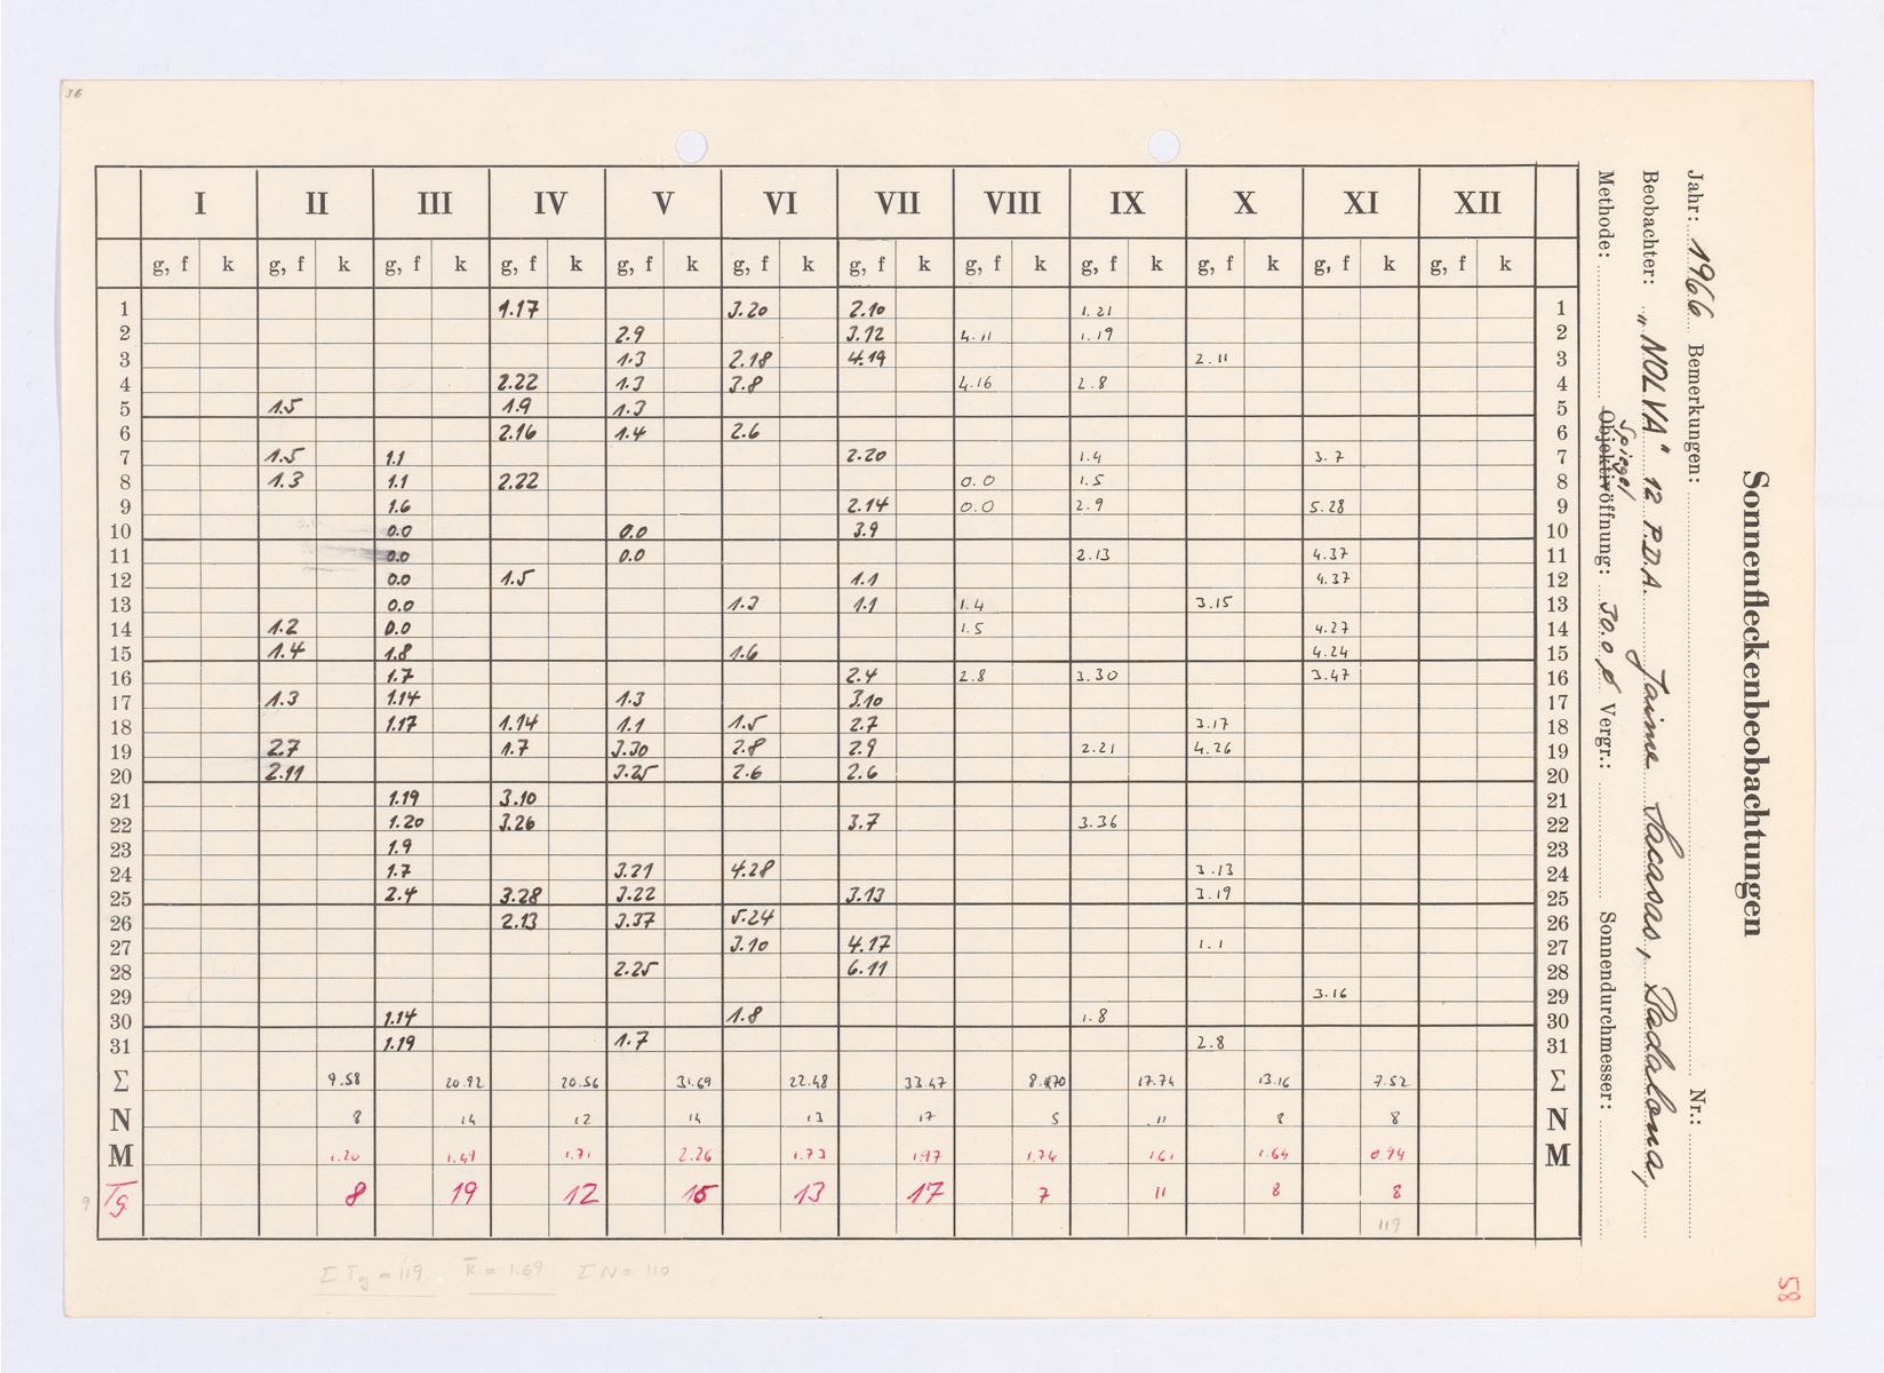 36
Sonnenfleckenbeobachtungen
Jahr: 1966 Bemerkungen: Nr.:
Beobachter: "NOLVA" 12 P.D.A. Jaime Sacasas, Badalona,
Spiegel
Methode: Objektivöffnung: 30.0 ø Vergr.: Sonnendurchmesser:
I II III IV V VI VII VIII IX X XI XII
g, f k g, f k g, f k g, f k g, f k g, f k g, f k g, f k g, f k g, f k g, f k g, f k
1 1.17 3.20 2.10 1.21 1
2 2.9 3.12 4.11 1.19 2
3 1.3 2.18 4.19 2.11 3
4 2.22 1.3 3.8 4.16 2.8 4
5 1.5 1.9 1.3 5
6 2.16 1.4 2.6 6
7 1.5 1.1 2.20 1.4 3.7 7
8 1.3 1.1 2.22 0.0 1.5 8
9 1.6 2.14 0.0 2.9 5.28 9
10 0.0 0.0 3.9 10
11 0.0 0.0 2.13 4.37 11
12 0.0 1.5 1.1 4.37 12
13 0.0 1.1 1.4 3.15 13
14 1.2 0.0 1.5 4.27 14
15 1.4 1.8 1.6 4.24 15
16 1.7 2.4 2.8 3.30 3.47 16
17 1.3 1.14 1.3 3.10 17
18 1.17 1.14 1.1 1.5 2.7 3.17 18
19 2.7 1.7 3.30 2.8 2.9 2.21 4.26 19
20 2.11 3.25 2.6 2.6 20
21 1.19 3.10 21
22 1.20 3.26 3.7 3.36 22
23 1.9 23
24 1.7 3.21 4.28 3.13 24
25 2.4 3.28 3.22 3.13 3.19 25
26 2.13 3.37 5.24 26
27 3.10 4.17 1.1 27
28 2.25 6.11 28
29 3.16 29
30 1.14 1.8 1.8 30
31 1.19 1.7 2.8 31
Σ 9.58 20.92 20.56 31.69 22.48 33.47 17.74 13.16 7.52 Σ
N 8 14 12 14 13 17 5 11 8 8 N
M 1.20 1.49 1.71 2.26 1.73 1.97 1.74 1.61 1.64 0.94 M
9 Tg 8 19 12 15 13 17 7 11 8 8
119
Σ Tg = 119 k̄ = 1.69 Σ N = 110
58